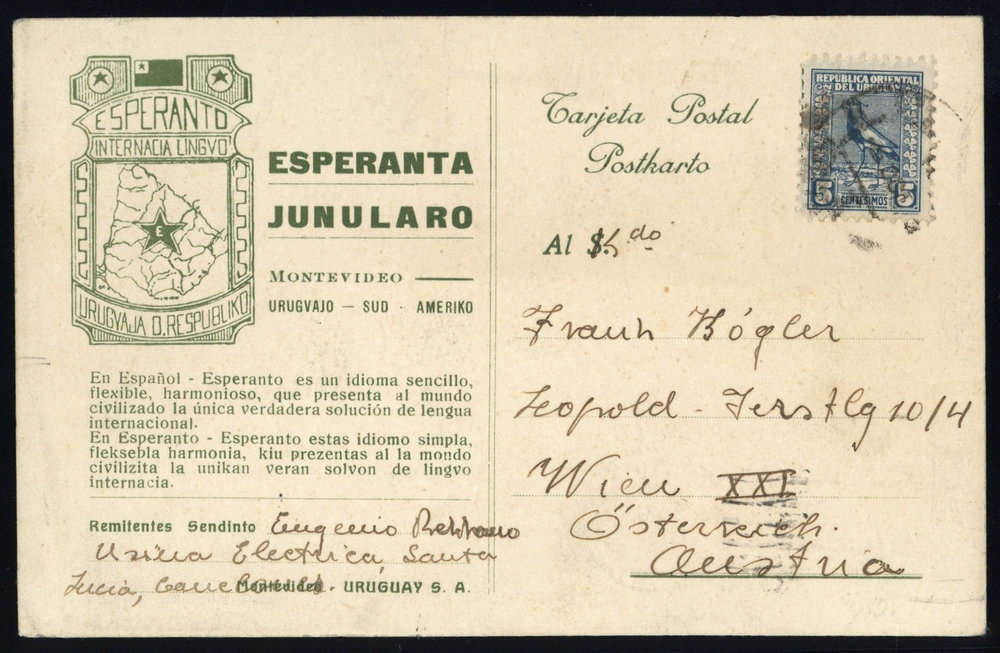 ESPERANTO
INTERNACIA LINGVO
E
URUGVAJA O. RESPUBLIKO
ESPERANTA
JUNULARO
MONTEVIDEO
URUGVAJO - SUD - AMERIKO
En Español - Esperanto es un idioma sencillo,
flexible, harmonioso, que presenta al mundo
civilizado la única verdadera solución de lengua
internacional.
En Esperanto - Esperanto estas idiomo simpla,
fleksebla harmonia, kiu prezentas al la mondo
civilizita la unikan veran solvon de lingvo
internacia.
Remitentes Sendinto Eugenio
Usina Electrica, Santa
Lucia, Montevideo. URUGUAY S. A.
Tarjeta Postal
Postkarto
REPUBLICA ORIENTAL
DEL URUGUAY
5 5
CENTESIMOS
Al S.
Frank Bógler
Leopold - 10/4
Wien XXI
Österreich.
Austria